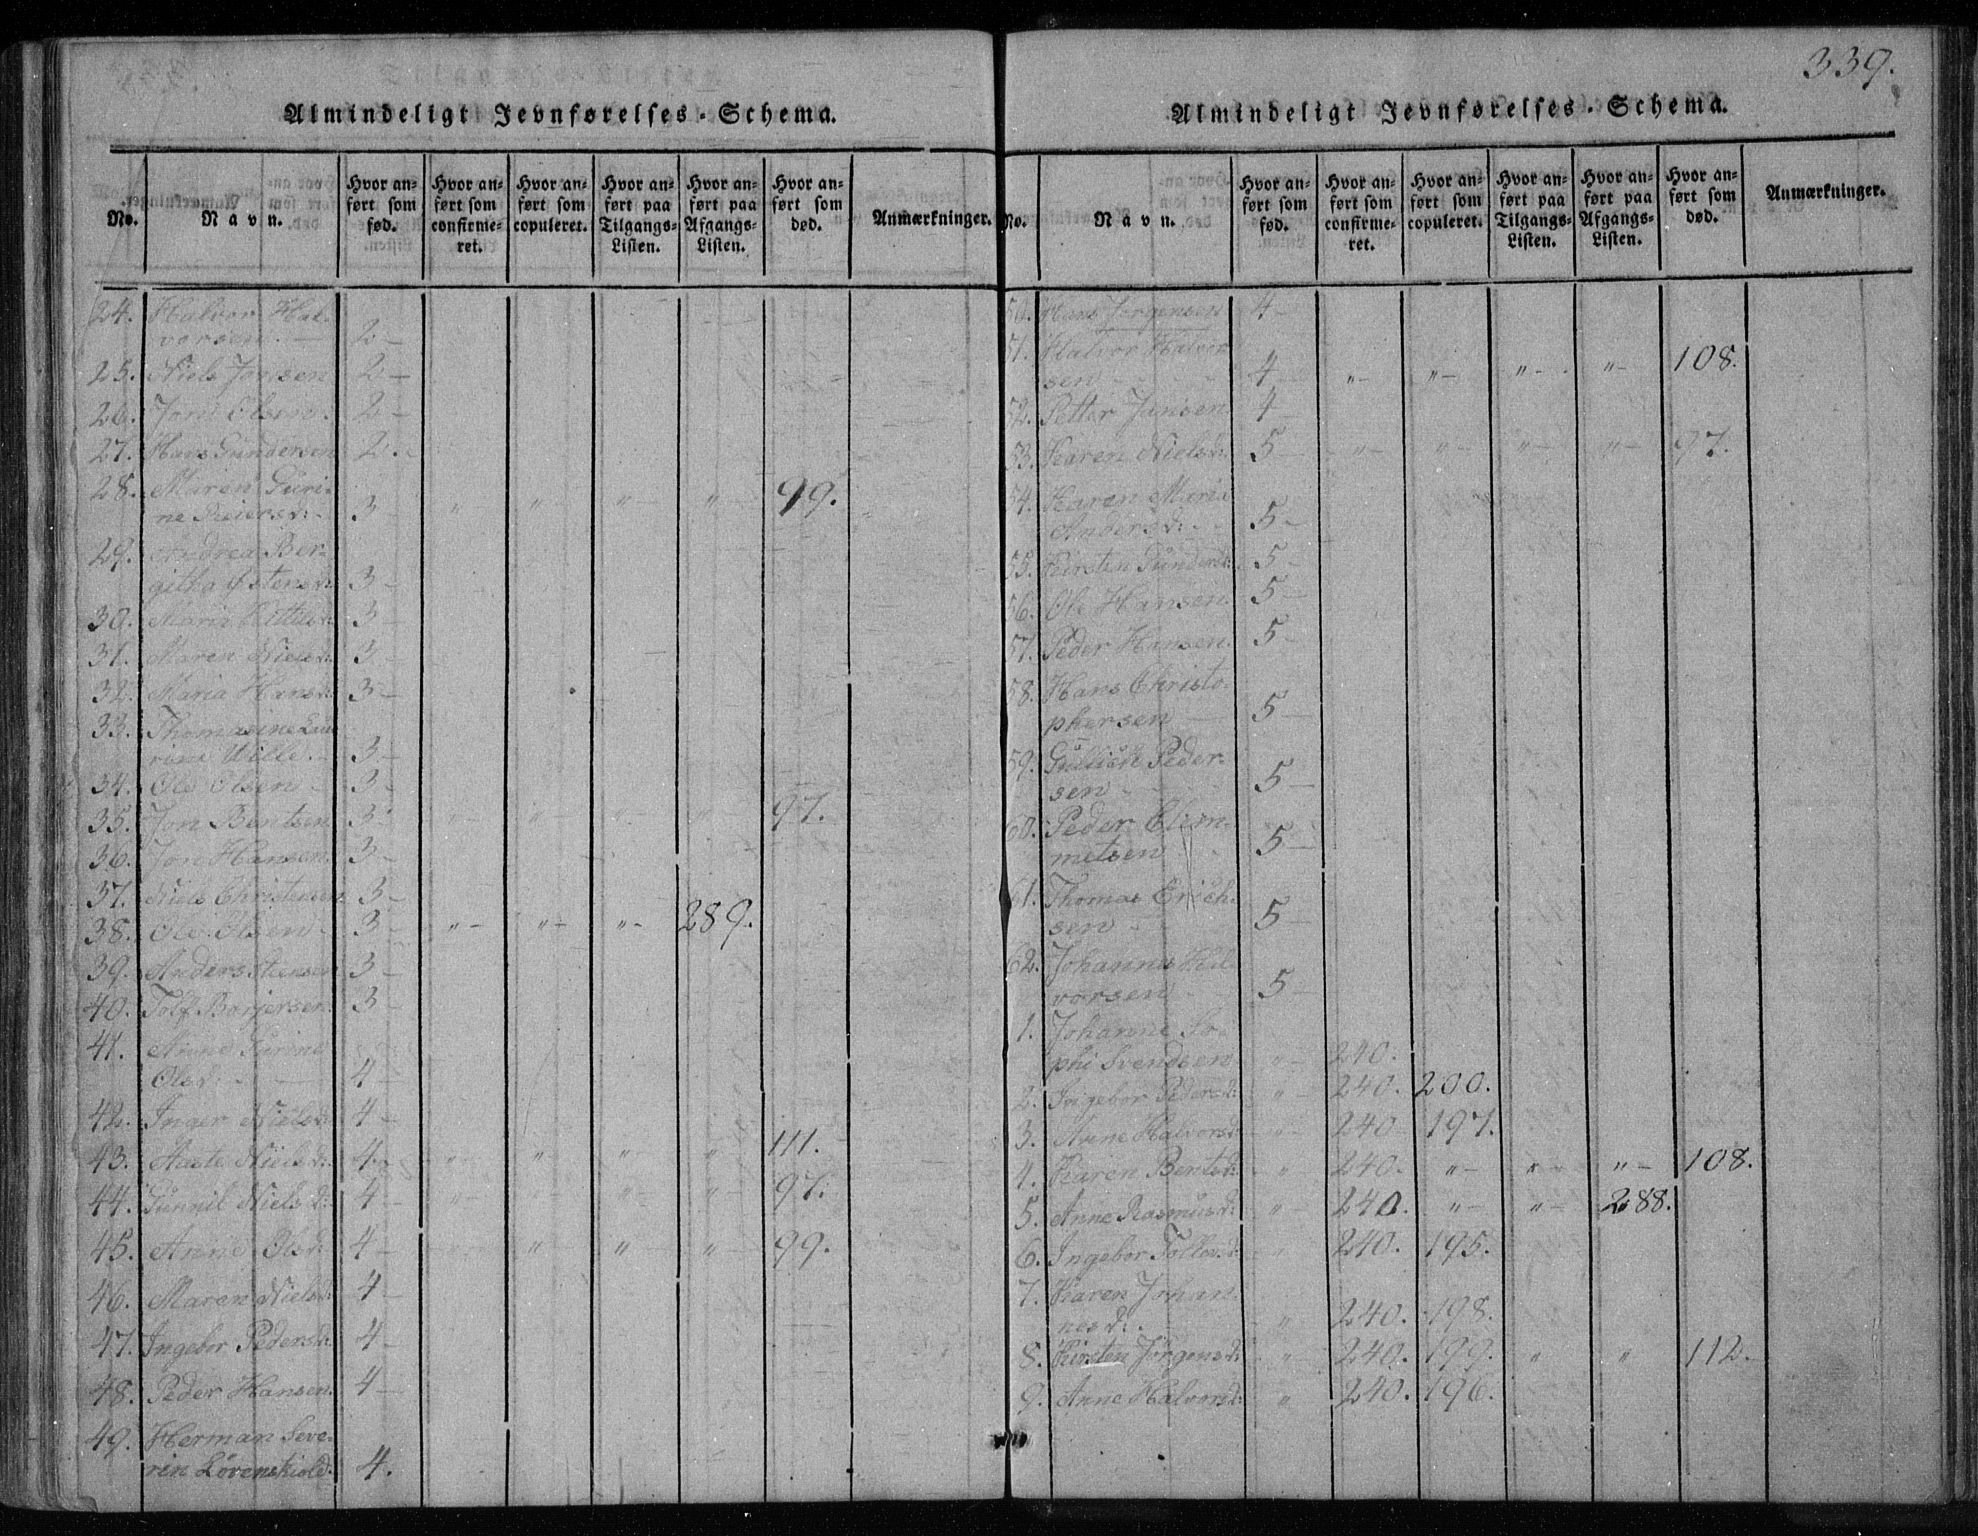 339.
Almindeligt Jevnførelses-Schema.
No. Navn. Hvor anført som fød. Hvor anført som confirmeret. Hvor anført som copuleret. Hvor anført paa Tilgangs-Listen. Hvor anført paa Afgangs-Listen. Hvor anført som død. Anmærkninger.
24. Halvor Hal-
vorsen. 2
25. Niels Jonsen 2
26. Jon Olsen. 2
27. Hans Gundersen 2.
28. Maren Guri-
ne 3 " " " " 99.
29. Andrea Ber-
githa Østensd: 3
30. Maria 3
31. Maren Nielsd: 3
32. Maria Hansd: 3
33. Thomasine Lau
rine Wille. 3
34. Ole Olsen 3
35. Jon Bentsen 3 " " " " 97.
36. Jon Hansen. 3
37. Niels Christensen 3
38. Ole Olsen 3 " " " 289.
39. Anders 3
40. Tolf 3
41. Anne
Olsd: 4
42. Inger Nielsd: 4
43. Niels d: 4 " " " " 111.
44. Gunnil Niels d: 4 " " " " 97.
45. Anne Olsd: 4 " " " " 99.
46. Maren Nielsd: 4
47. Ingebor Pedersd: 4
48. Peder Hansen. 4
49. Herman Seve-
rin Løvenskiold. 4.
Almindeligt Jevnførelses-Schema.
No. Navn. Hvor anført som fød. Hvor anført som confirmeret. Hvor anført som copuleret. Hvor anført paa Tilgangs-Listen. Hvor anført paa Afgangs-Listen. Hvor anført som død. Anmærkninger.
50. Hans Jørgensen 4
51. Halvor Halvor
sen 4 " " " " 108.
52. Petter Jansen 4
53. Karen Nielsd: 5 " " " " 97.
54. Karen Maria
Andersd: 5
55. Kirsten Gundersd: 5
56. Ole Hansen. 5
57. Peder Hansen. 5
58. Hans Christo-
phersen 5
59. Gullich Peder-
sen 5
60. Peder Clem-
metsen 5
61. Thomas Erich-
sen 5
62. Johannes Hal
vorsen 5
1. Johanne So-
phi Svendsen " 240.
2. Ingebor Pedersd: " 240. 200.
3. Anne Halvorsd: " 240 197.
4. Karen Bentsd: " 240. " " " 108.
5. Anne Rasmusd: " 240. " " 288.
6. Ingebor Tollevsd: " 240. 195.
7. Karen Johan
nesd: " 240. 198.
8. Kirsten Jørgensd: " 240. 199. " " 112.
9. Anne Halvorsd: " 240. 196.